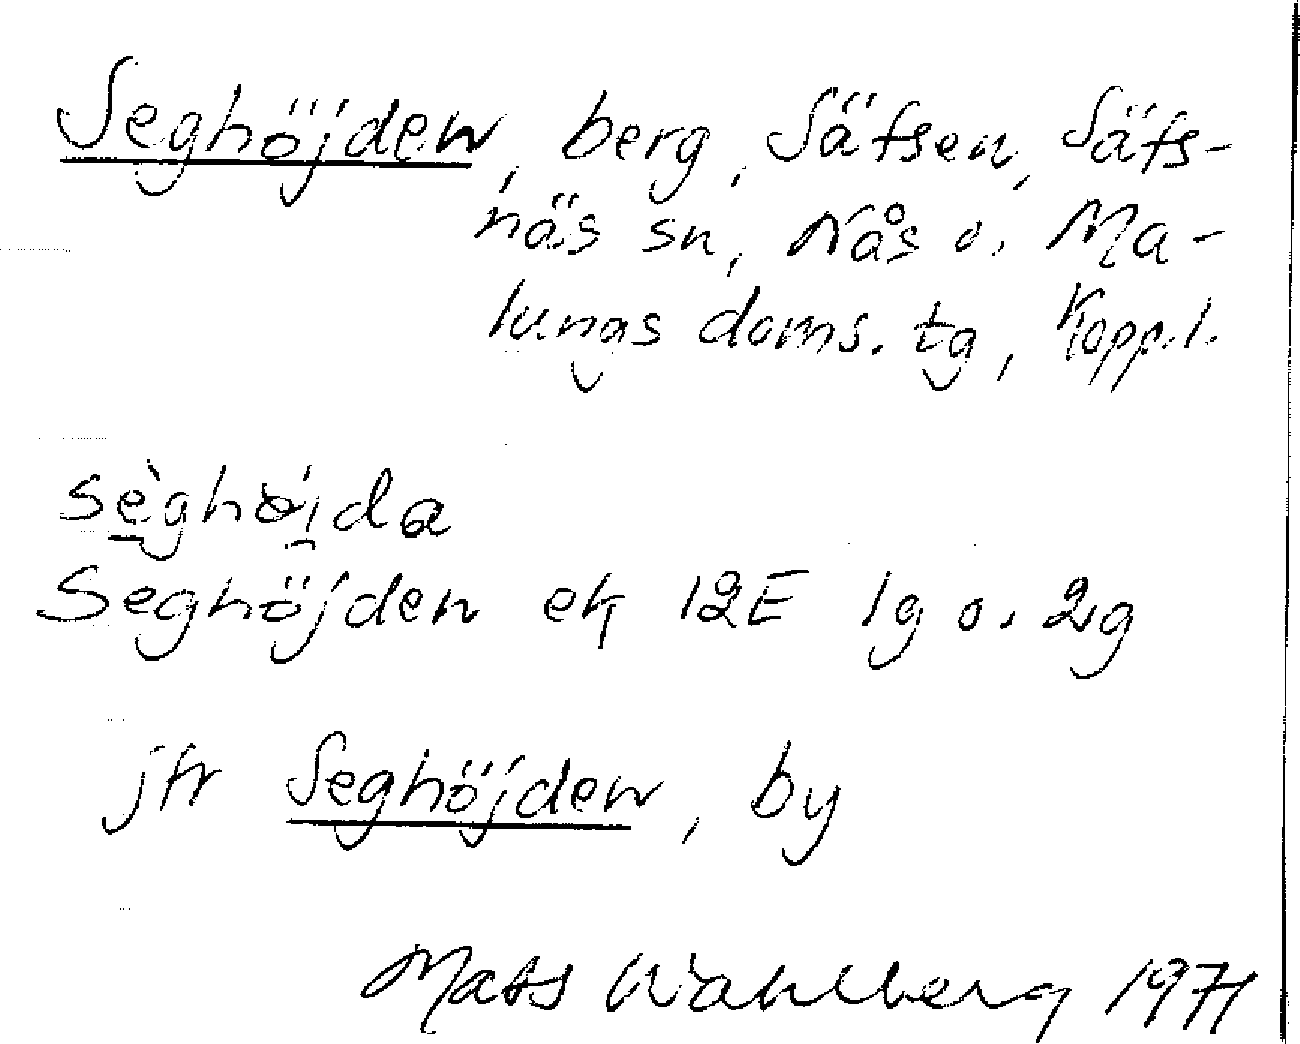 Seghöjden, berg, Säfsen, Säfs-
näs sn, Nås o. Ma-
lungs doms. tg, Kopp.l.
sèghöjda
Seghöjden ek 12E 1g o. 2g
jfr Seghöjden, by
Mats Wahlberg 1971